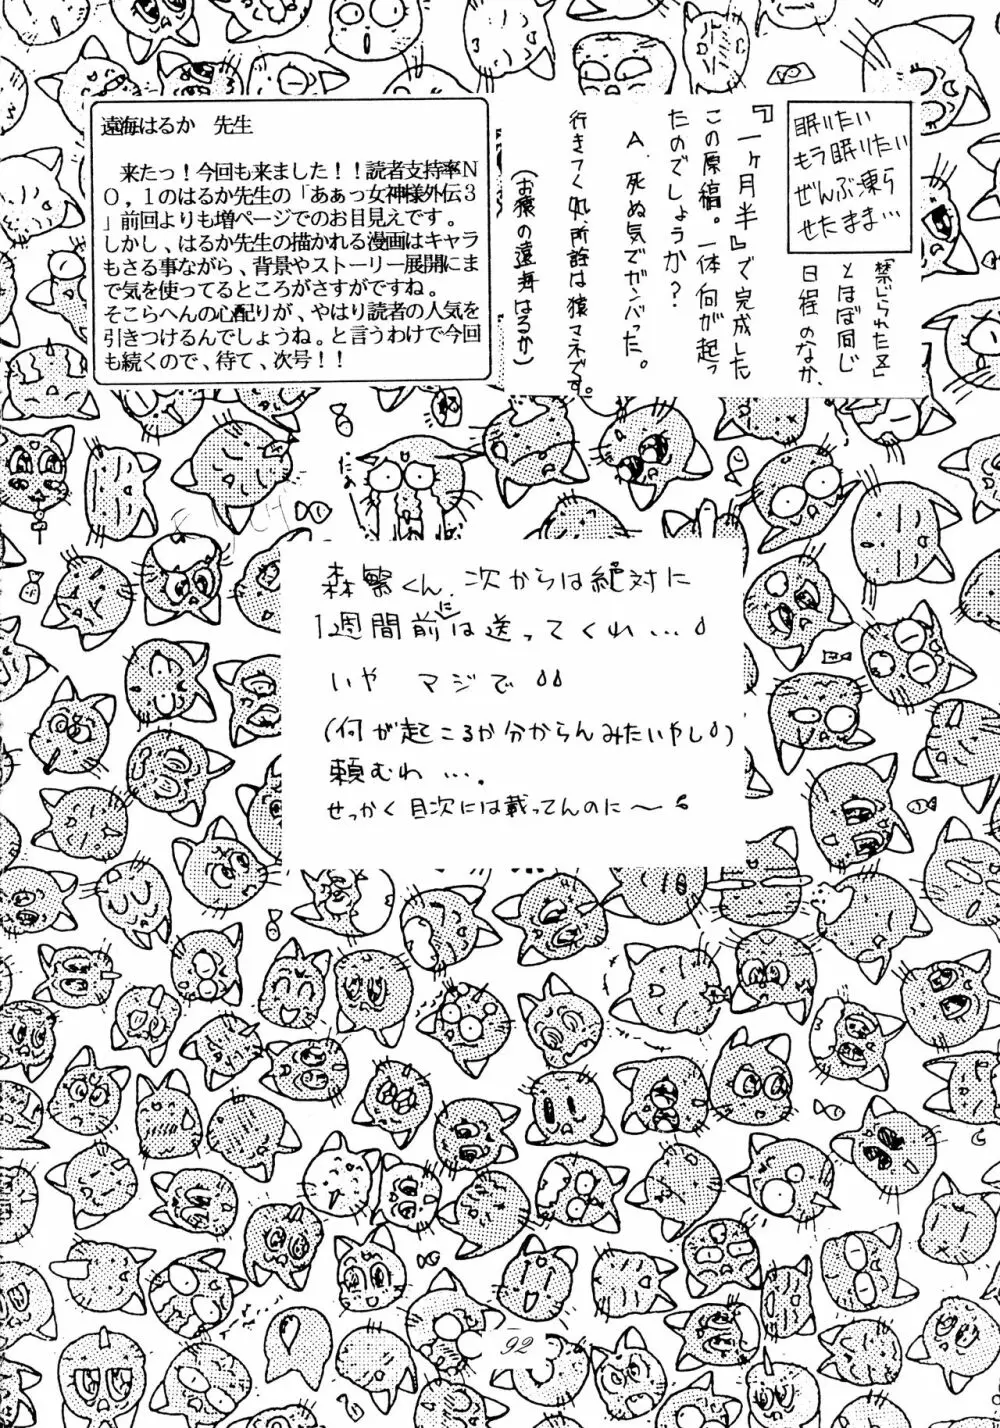 眠りたい
もう眠りたい
ぜんぶ凍ら
せたまま…
「禁じられた区」
とほぼ同じ
日程のなか、
『一ヶ月半』で完成した
この原稿。一体何が起っ
たのでしょうか?
A. 死ぬ気でガンバった。
行きてく
所詮は猿マネです。
(お猿の遠海はるか)
遠海はるか 先生
来たっ!今回も来ました!!読者支持率N
O,1のはるか先生の「あぁっ女神様外伝3
」前回よりも増ページでのお目見えです。
しかし、はるか先生の描かれる漫画はキャラ
もさる事ながら、背景やストーリー展開にま
で気を使ってるところがさすがですね。
そこらへんの心配りが、やはり読者の人気を
引きつけるんでしょうね。と言うわけで今回
も続くので、待て、次号!!
森繁くん、次からは絶対に
1週間前には送ってくれ…
いや マジで
(何が起こるか分からんみたいやし)
頼むわ…。
せっかく目次には載ってんのに〜
92